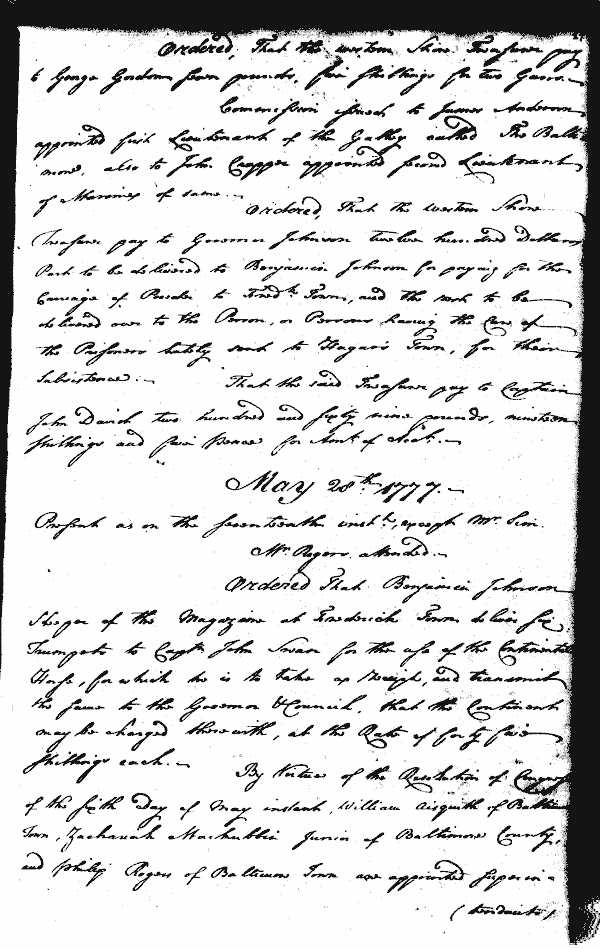 Ordered, That the western Shore Treasurer pay
to George Gordon seven pounds, five shillings for two Guns.
Commission issued to James Anderson
appointed first Lieutenant of the Galley called The Balti
more, also to John Cropper appointed second Lieutenant
of Marines of same.
Ordered, That the western Shore
Treasurer pay to Governor Johnson twelve hundred Dollars
Part to be delivered to Benjamin Johnson for paying for the
Carriage of Powder to Fredk Town, and the rest to be
delivered over to the Person, or Persons having the Care of
the Prisoners lately sent to Hagar's Town, for their
Subsistence.
That the said Treasurer pay to Captain
John David two hundred and sixty nine pounds, nineteen
shillings and pence for Amt of Acct.
May 28th 1777.
Present as on the seventeenth inst, except Mr. Sim.
Mr. Rogers attended.
Ordered That Benjamin Johnson
Keeper of the Magazine at Frederick Town deliver six
Trumpets to Capt John Swan for the use of the Continental
Horse, for which he is to take a Receipt, and transmit
the same to the Governor & Council, that the Continent
may be charged therewith, at the Rate of forty five
shillings each.
By Virtue of the Resolution of Congress
of the sixth Day of May instant, William Aisquith of Baltimore
Town, Zachariah Mackubbin Junior of Baltimore County,
and Philip Rogers of Baltimore Town are appointed superin=
(tendants)